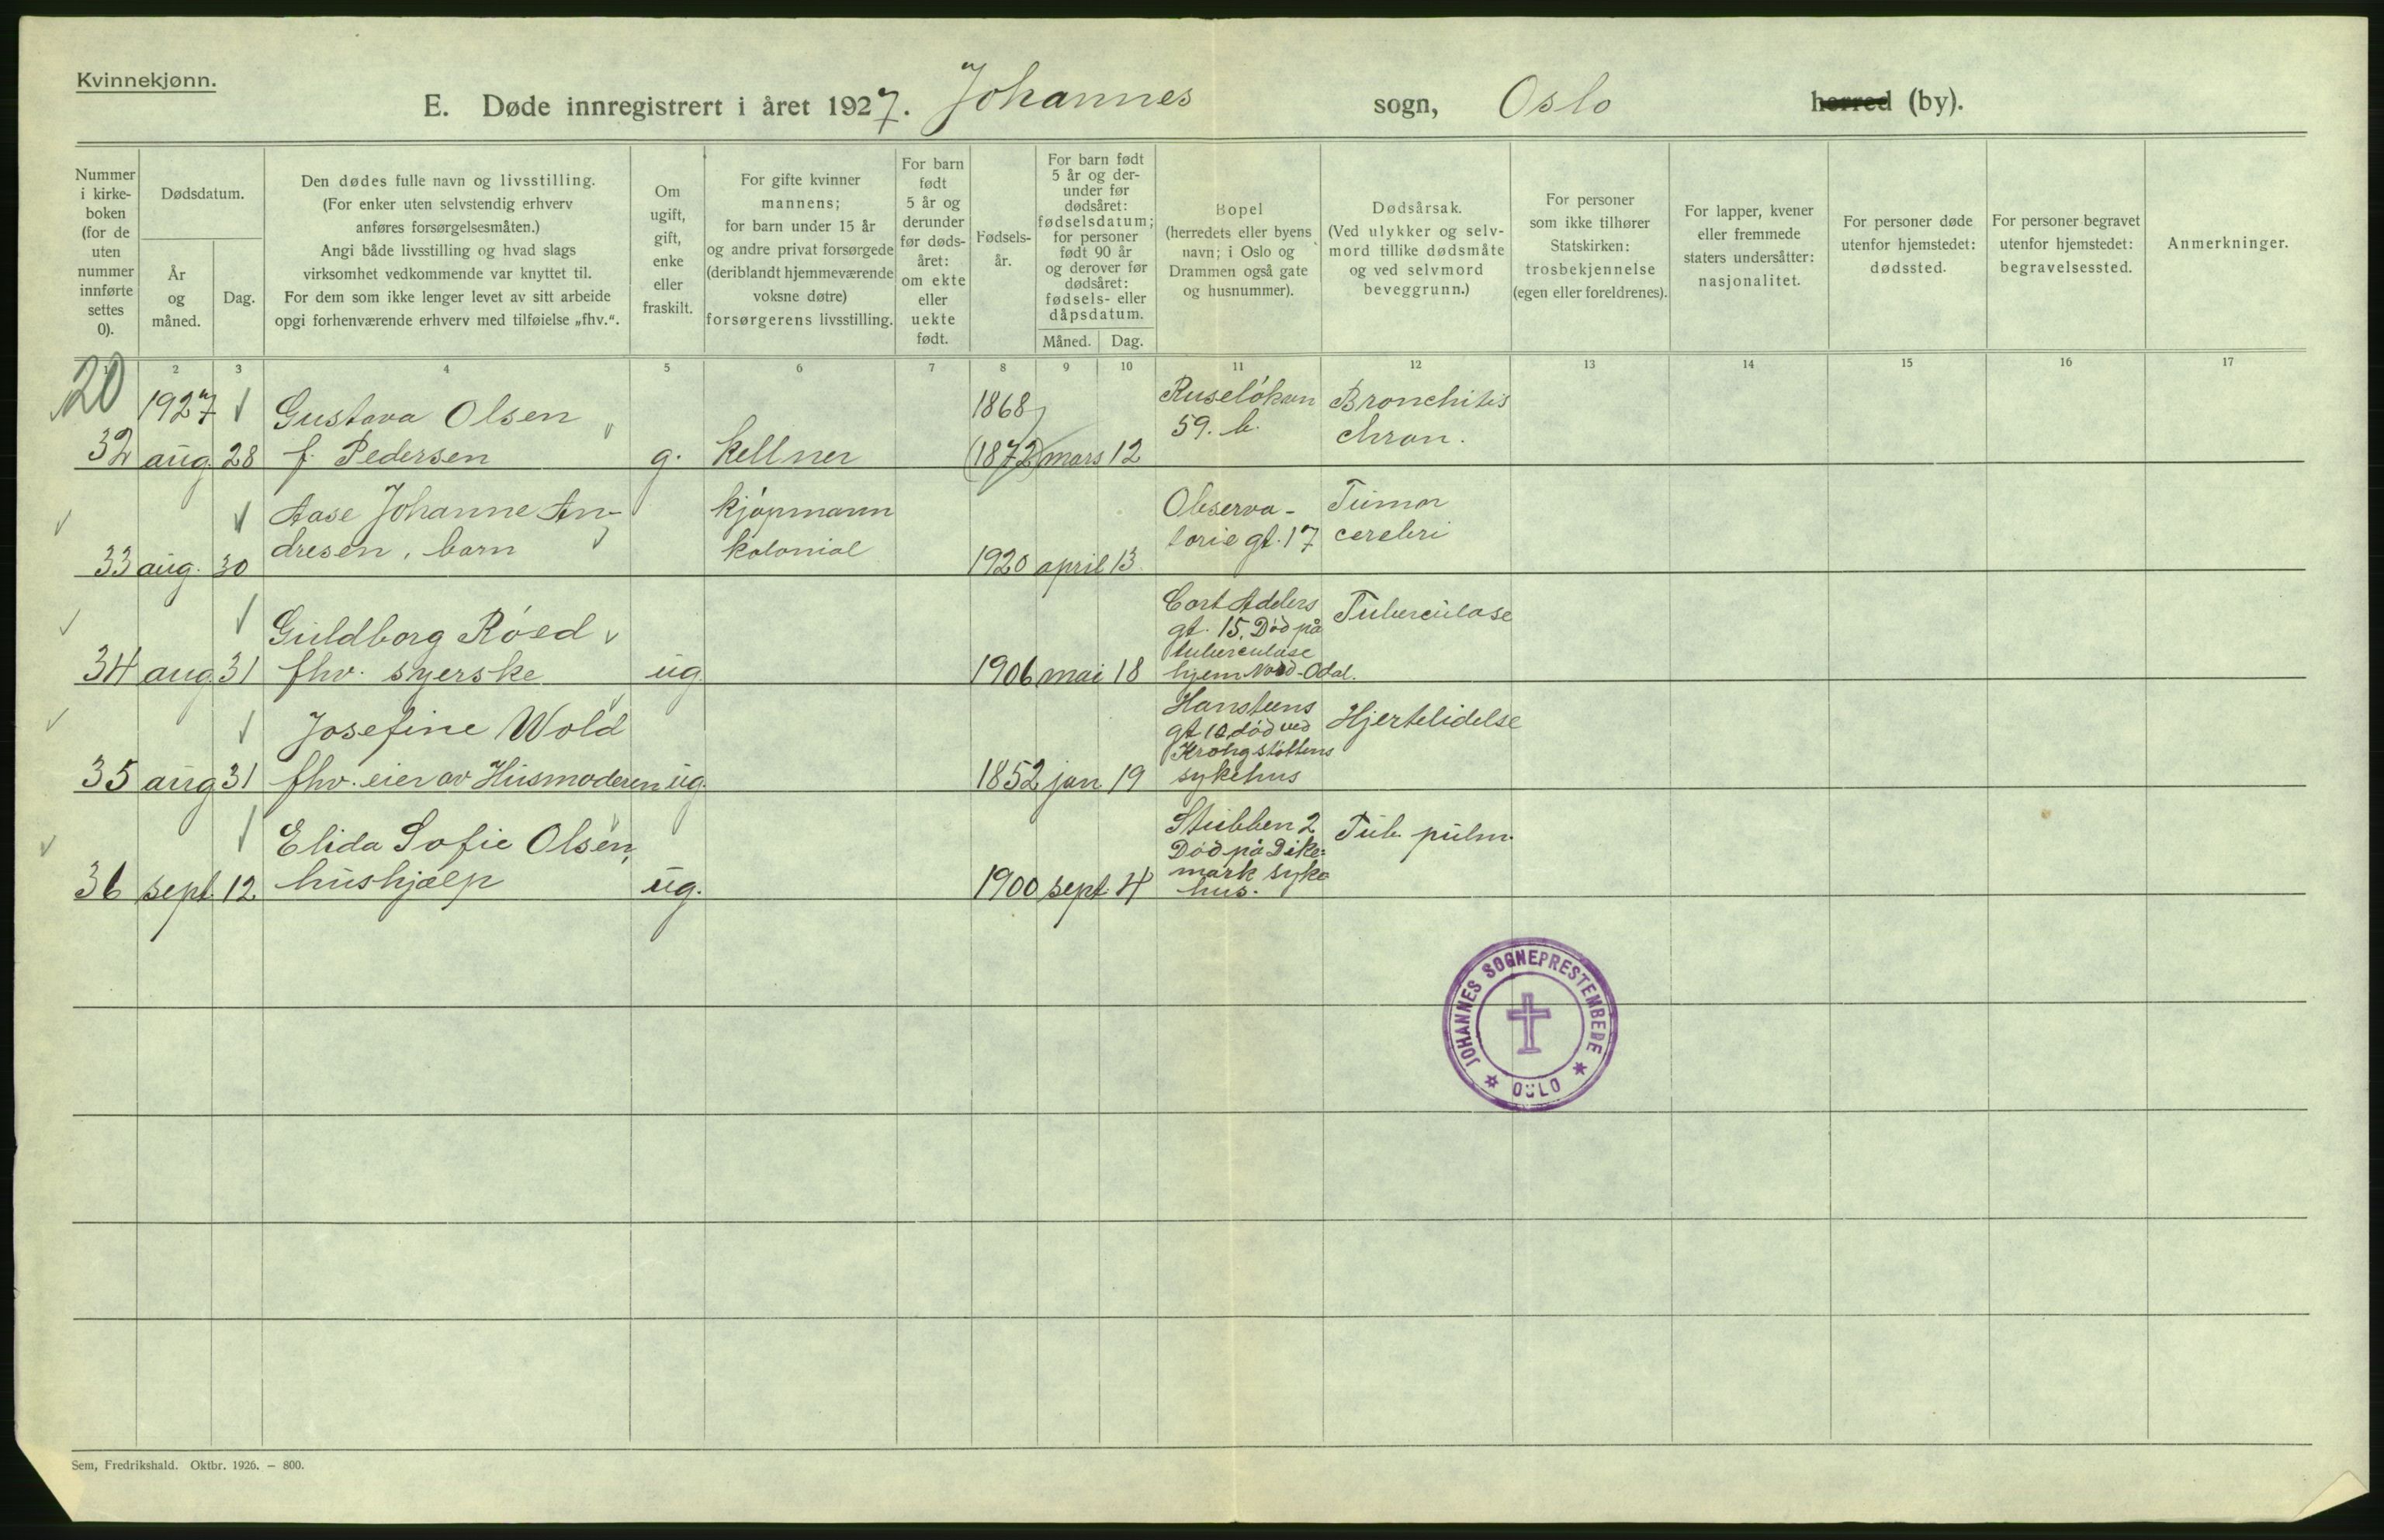 Kvinnekjønn.
E. Døde innregistrert i året 1927. Johannes sogn, Oslo herred (by).
Nummer i kirke-boken (for de uten nummer innførte settes 0).
Dødsdatum.
År og måned.
Dag.
Den dødes fulle navn og livsstilling.
(For enker uten selvstendig erhverv
anføres forsørgelsesmåten.)
Angi både livsstilling og hvad slags
virksomhet vedkommende var knyttet til.
For dem som ikke lenger levet av sitt arbeide
opgi forhenværende erhverv med tilføielse „fhv.“.
Om
ugift,
gift,
enke
eller
fraskilt.
For gifte kvinner
mannens;
for barn under 15 år
og andre privat forsørgede
(deriblandt hjemmeværende
voksne døtre)
forsørgerens livsstilling.
For barn
født
5 år og
derunder
før døds-
året:
om ekte
eller
uekte
født.
Fødsels-
år.
For barn født
5 år og der-
under før
dødsåret:
fødselsdatum;
for personer
født 90 år
og derover før
dødsåret:
fødsels- eller
dåpsdatum.
Måned. Dag.
Bopel
(herredets eller byens
navn; i Oslo og
Drammen også gate
og husnummer).
Dødsårsak.
(Ved ulykker og selv-
mord tillike dødsmåte
og ved selvmord
beveggrunn.)
For personer
som ikke tilhører
Statskirken:
trosbekjennelse
(egen eller foreldrenes).
For lapper, kvener
eller fremmede
staters undersåtter:
nasjonalitet.
For personer døde
utenfor hjemstedet:
dødssted.
For personer begravet
utenfor hjemstedet:
begravelsessted.
Anmerkninger.
1 2 3 4 5 6 7 8 9 10 11 12 13 14 15 16 17
20
1927 Gustava Olsen 1868 Ruseløkvn Bronchitis
59. b. chron.
32 aug. 28 f. Pedersen g. kellner (1872) mars 12
Aase Johanne An- kjøpmann Observa- Tumor
dresen, barn kolonial torie gt. 17 cerebri
33 aug. 30 1920 april 13
Cort Adelers Tuberculose
Guldborg Røed gt. 15. Død på
tuberculose
34 aug. 31 fhv. syerske ug. 1906 mai 18 hjem Nord-Odal.
Hansteens
Josefine Wold gt 12 død ved Hjertelidelse
Krohgstøttens
35 aug 31 fhv. eier av Husmoderen ug. 1852 jan. 19 sykehus
Stubben 2
Elida Sofie Olsen, Død på Dike- Tub. pulm.
mark syke
36 sept. 12 hushjælp ug. 1900 sept 4 hus.
JOHANNES SOGNEPRESTEMBEDE
OSLO
Sem, Fredrikshald. Oktbr. 1926. — 800.